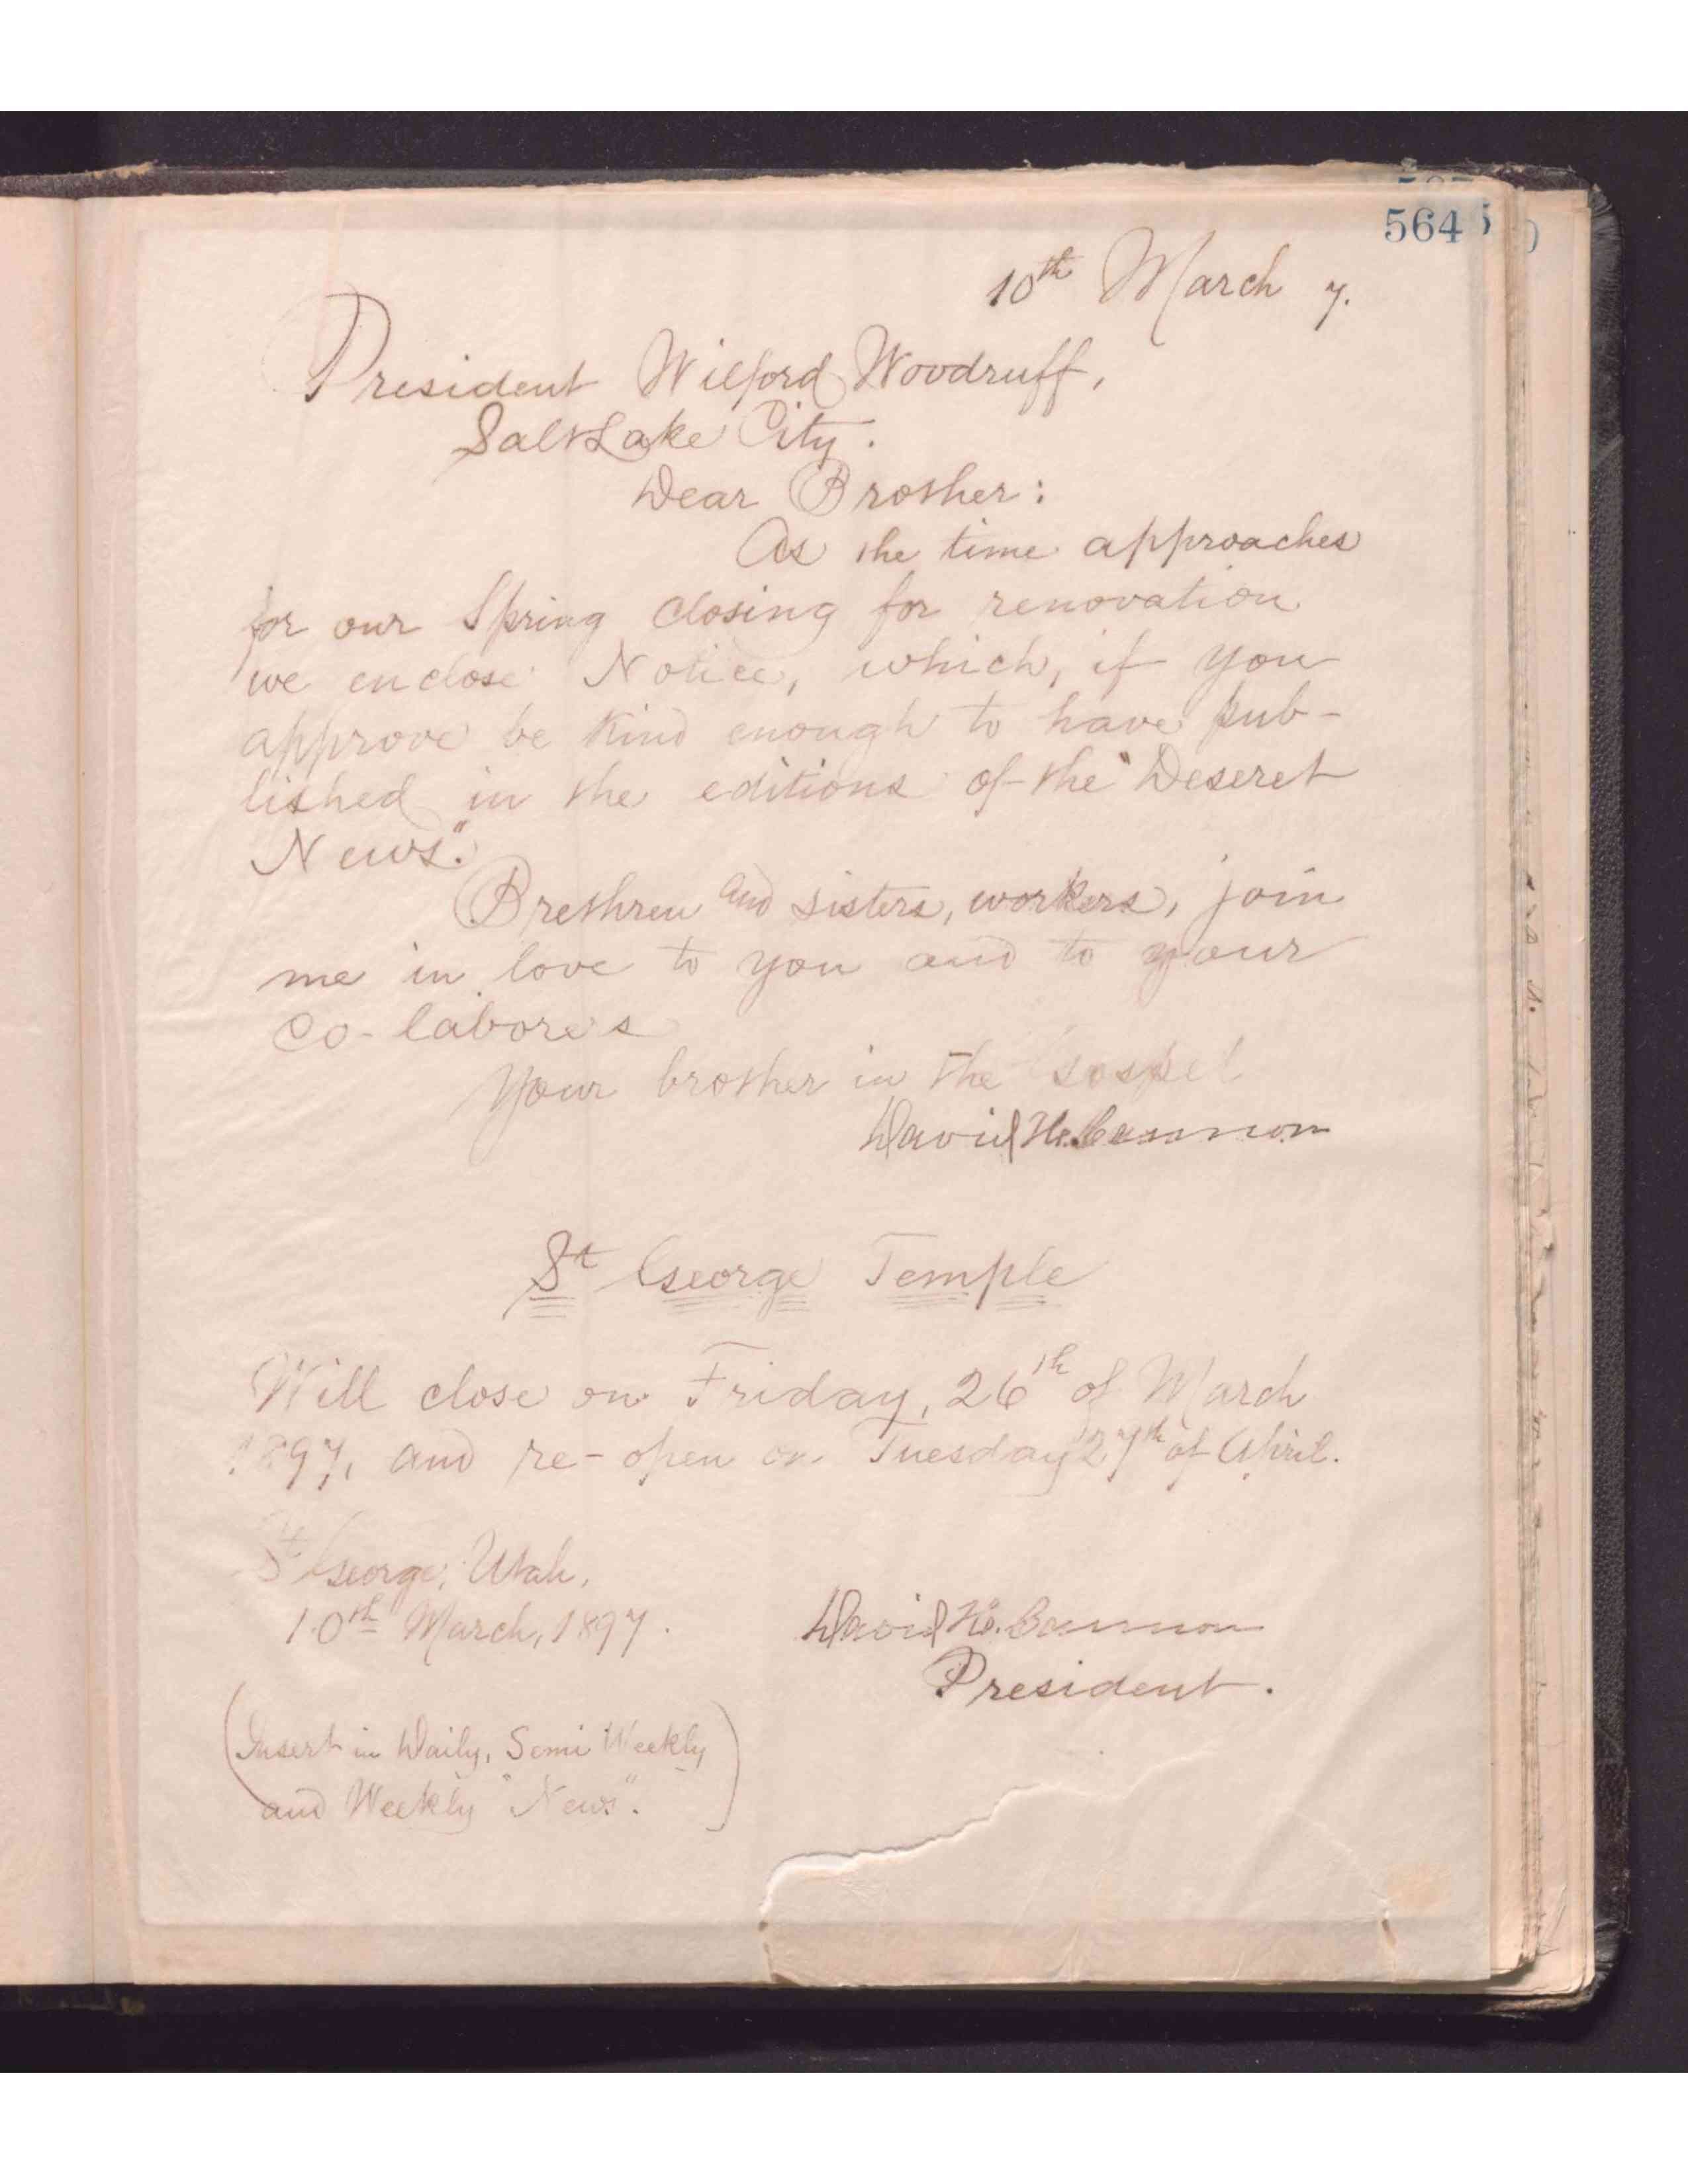 564
10th March 7.
President Wilford Woodruff,
Salt Lake City.
Dear Brother:
As the time approaches
for our Spring closing for renovation
we enclose Notice, which, if you
approve be kind enough to have pub-
lished in the editions of the "Deseret
News".
Brethren and sisters, workers, join
me in love to you and to your
co-labores
Your brother in the Gospel
David H. Cannon
St George Temple
Will close on Friday, 26th of March
1897, and re-open on Tuesday 27th of April.
St George, Utah,
10th March, 1897.
David H. Cannon
President.
(Insert in Daily, Semi Weekly
and Weekly "News".)